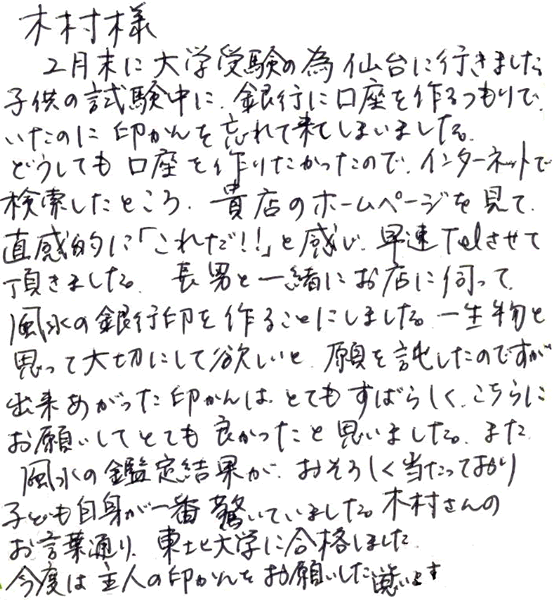 木村様
2月末に大学受験の為仙台に行きました
子供の試験中に、銀行に口座を作るつもりで
いたのに印かんを忘れて来てしまいました。
どうしても口座を作りたかったので、インターネットで
検索したところ、貴店のホームページを見て、
直感的に「これだ!!」と感じ、早速Telさせて
頂きました。 長男と一緒にお店に伺って、
風水の銀行印を作ることにしました。一生物と
思って大切にして欲しいと、願を託したのですが
出来あがった印かんは、とてもすばらしく、こちらに
お願いしてとても良かったと思いました。また
風水の鑑定結果が、おそろしく当たっており
子ども自身が一番驚いていました。木村さんの
お言葉通り、東北大学に合格しました
今度は主人の印かんをお願いしたいと思います